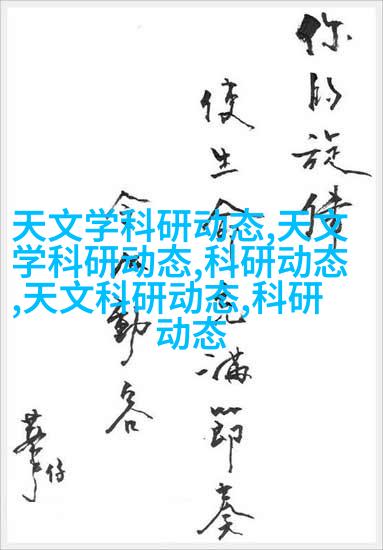 天文学科研动态,天文
学科研动态,科研动态
,天文科研动态,科研
动态
你的旋律
使生命充滿節奏
令人動容
華仔